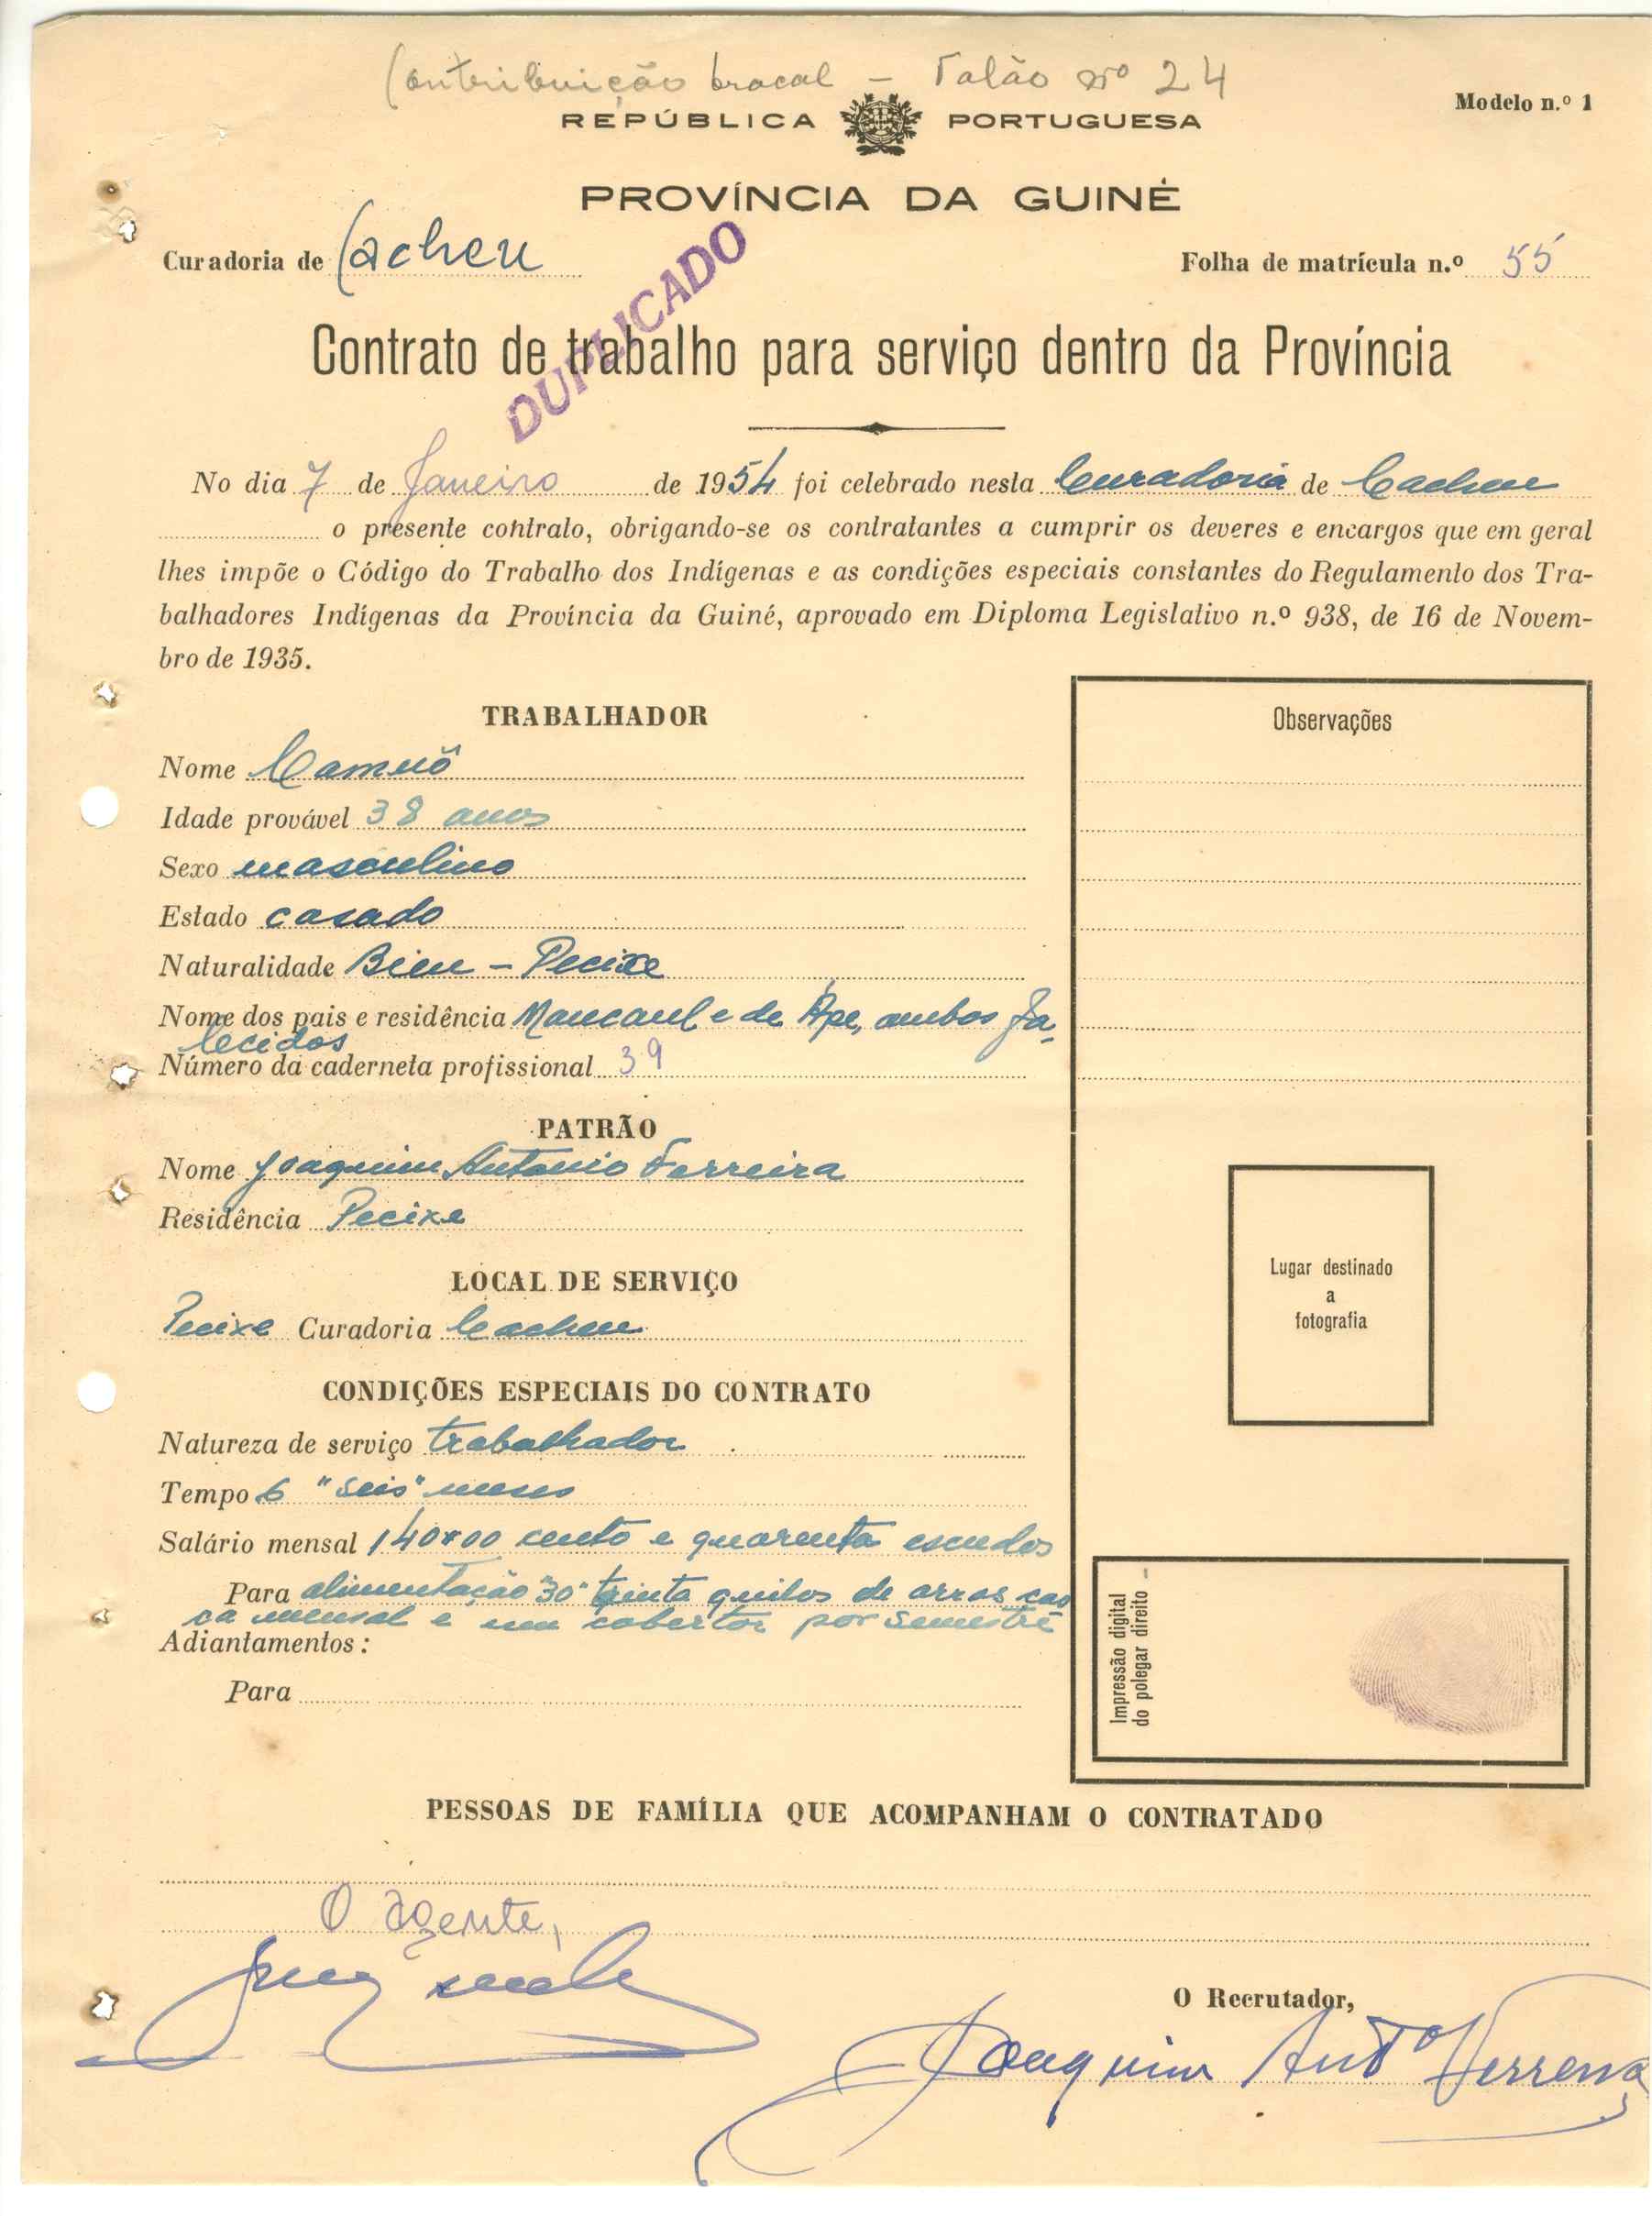 Contribuição braçal - Talão nº 24
Modelo n.º 1
REPÚBLICA PORTUGUESA
PROVÍNCIA DA GUINÉ
Curadoria de Cacheu
Folha de matrícula n.º 55
DUPLICADO
Contrato de trabalho para serviço dentro da Província
No dia 7 de Janeiro de 1954 foi celebrado nesta Curadoria de Cacheu
o presente contrato, obrigando-se os contratantes a cumprir os deveres e encargos que em geral
lhes impõe o Código do Trabalho dos Indígenas e as condições especiais constantes do Regulamento dos Tra-
balhadores Indígenas da Província da Guiné, aprovado em Diploma Legislativo n.º 938, de 16 de Novem-
bro de 1935.
TRABALHADOR
Nome Camuô
Idade provável 38 anos
Sexo masculino
Estado casado
Naturalidade Bieu - Pecixe
Nome dos pais e residência Mancaul e de Ape, ambos fa-
lecidos
Número da caderneta profissional 39
PATRÃO
Nome Joaquim Antonio Ferreira
Residência Pecixe
LOCAL DE SERVIÇO
Pecixe Curadoria Cacheu
CONDIÇÕES ESPECIAIS DO CONTRATO
Natureza de serviço trabalhador
Tempo 6 "seis" meses
Salário mensal 140$00 cento e quarenta escudos
Para alimentação "30" trinta quilos de arros cas
ca mensal e um cobertor por semestre
Adiantamentos:
Para
Observações
Lugar destinado
a
fotografia
Impressão digital
do polegar direito
PESSOAS DE FAMÍLIA QUE ACOMPANHAM O CONTRATADO
O agente,
O Recrutador,
Joaquim Antº Ferreira